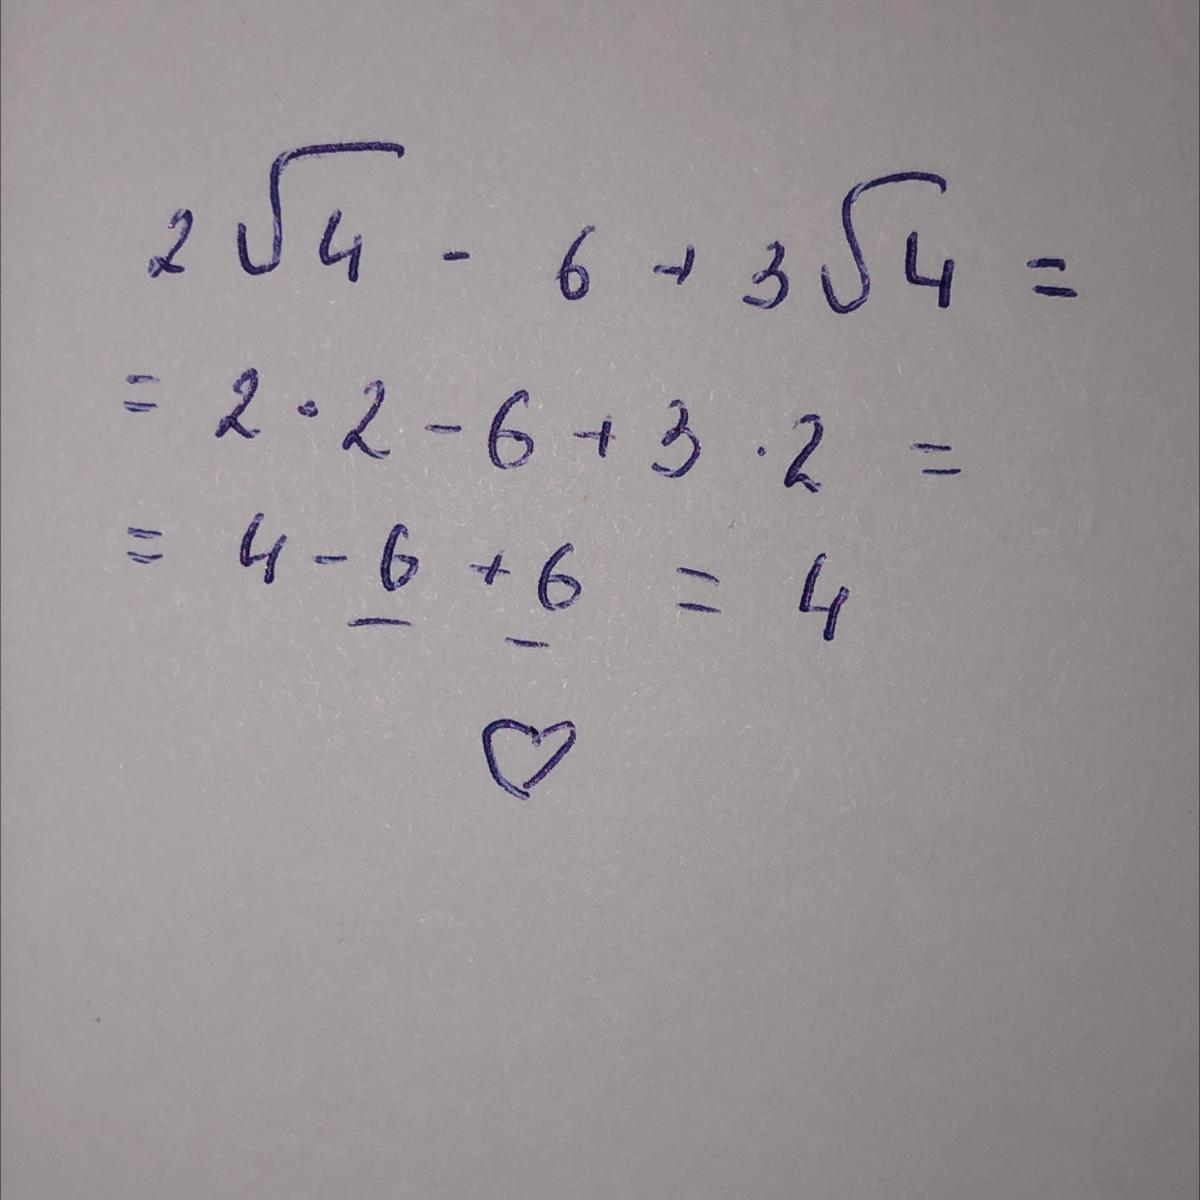 2√4 - 6 + 3√4 =
= 2 · 2 - 6 + 3 · 2 =
= 4 - 6 + 6 = 4
♡